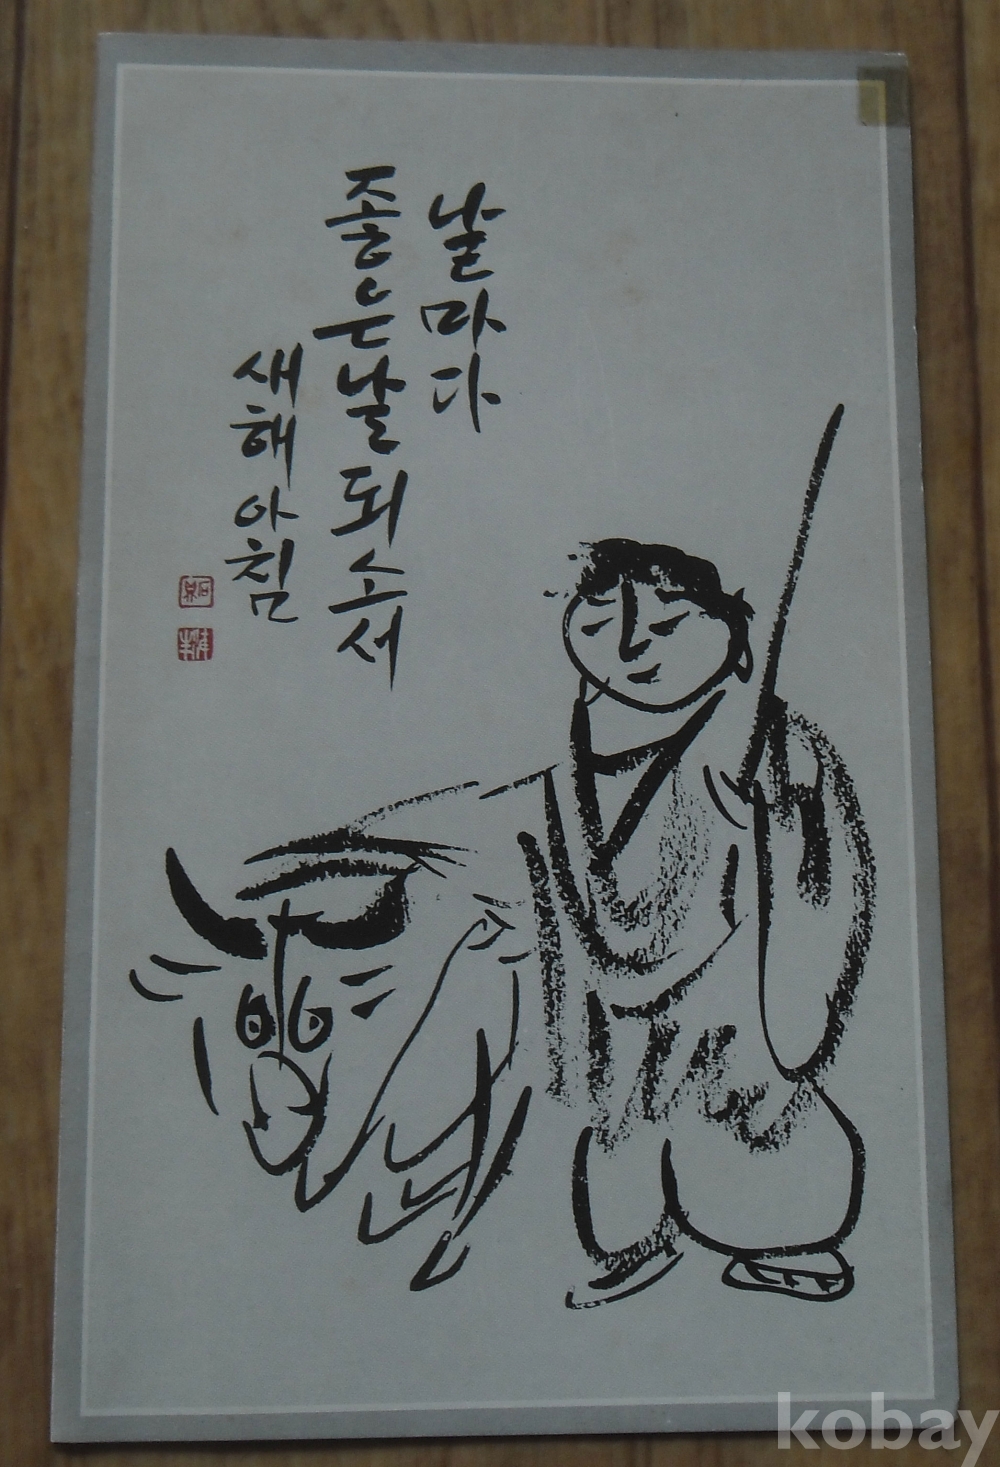 날마다
좋은날 되소서
새해 아침
kobay